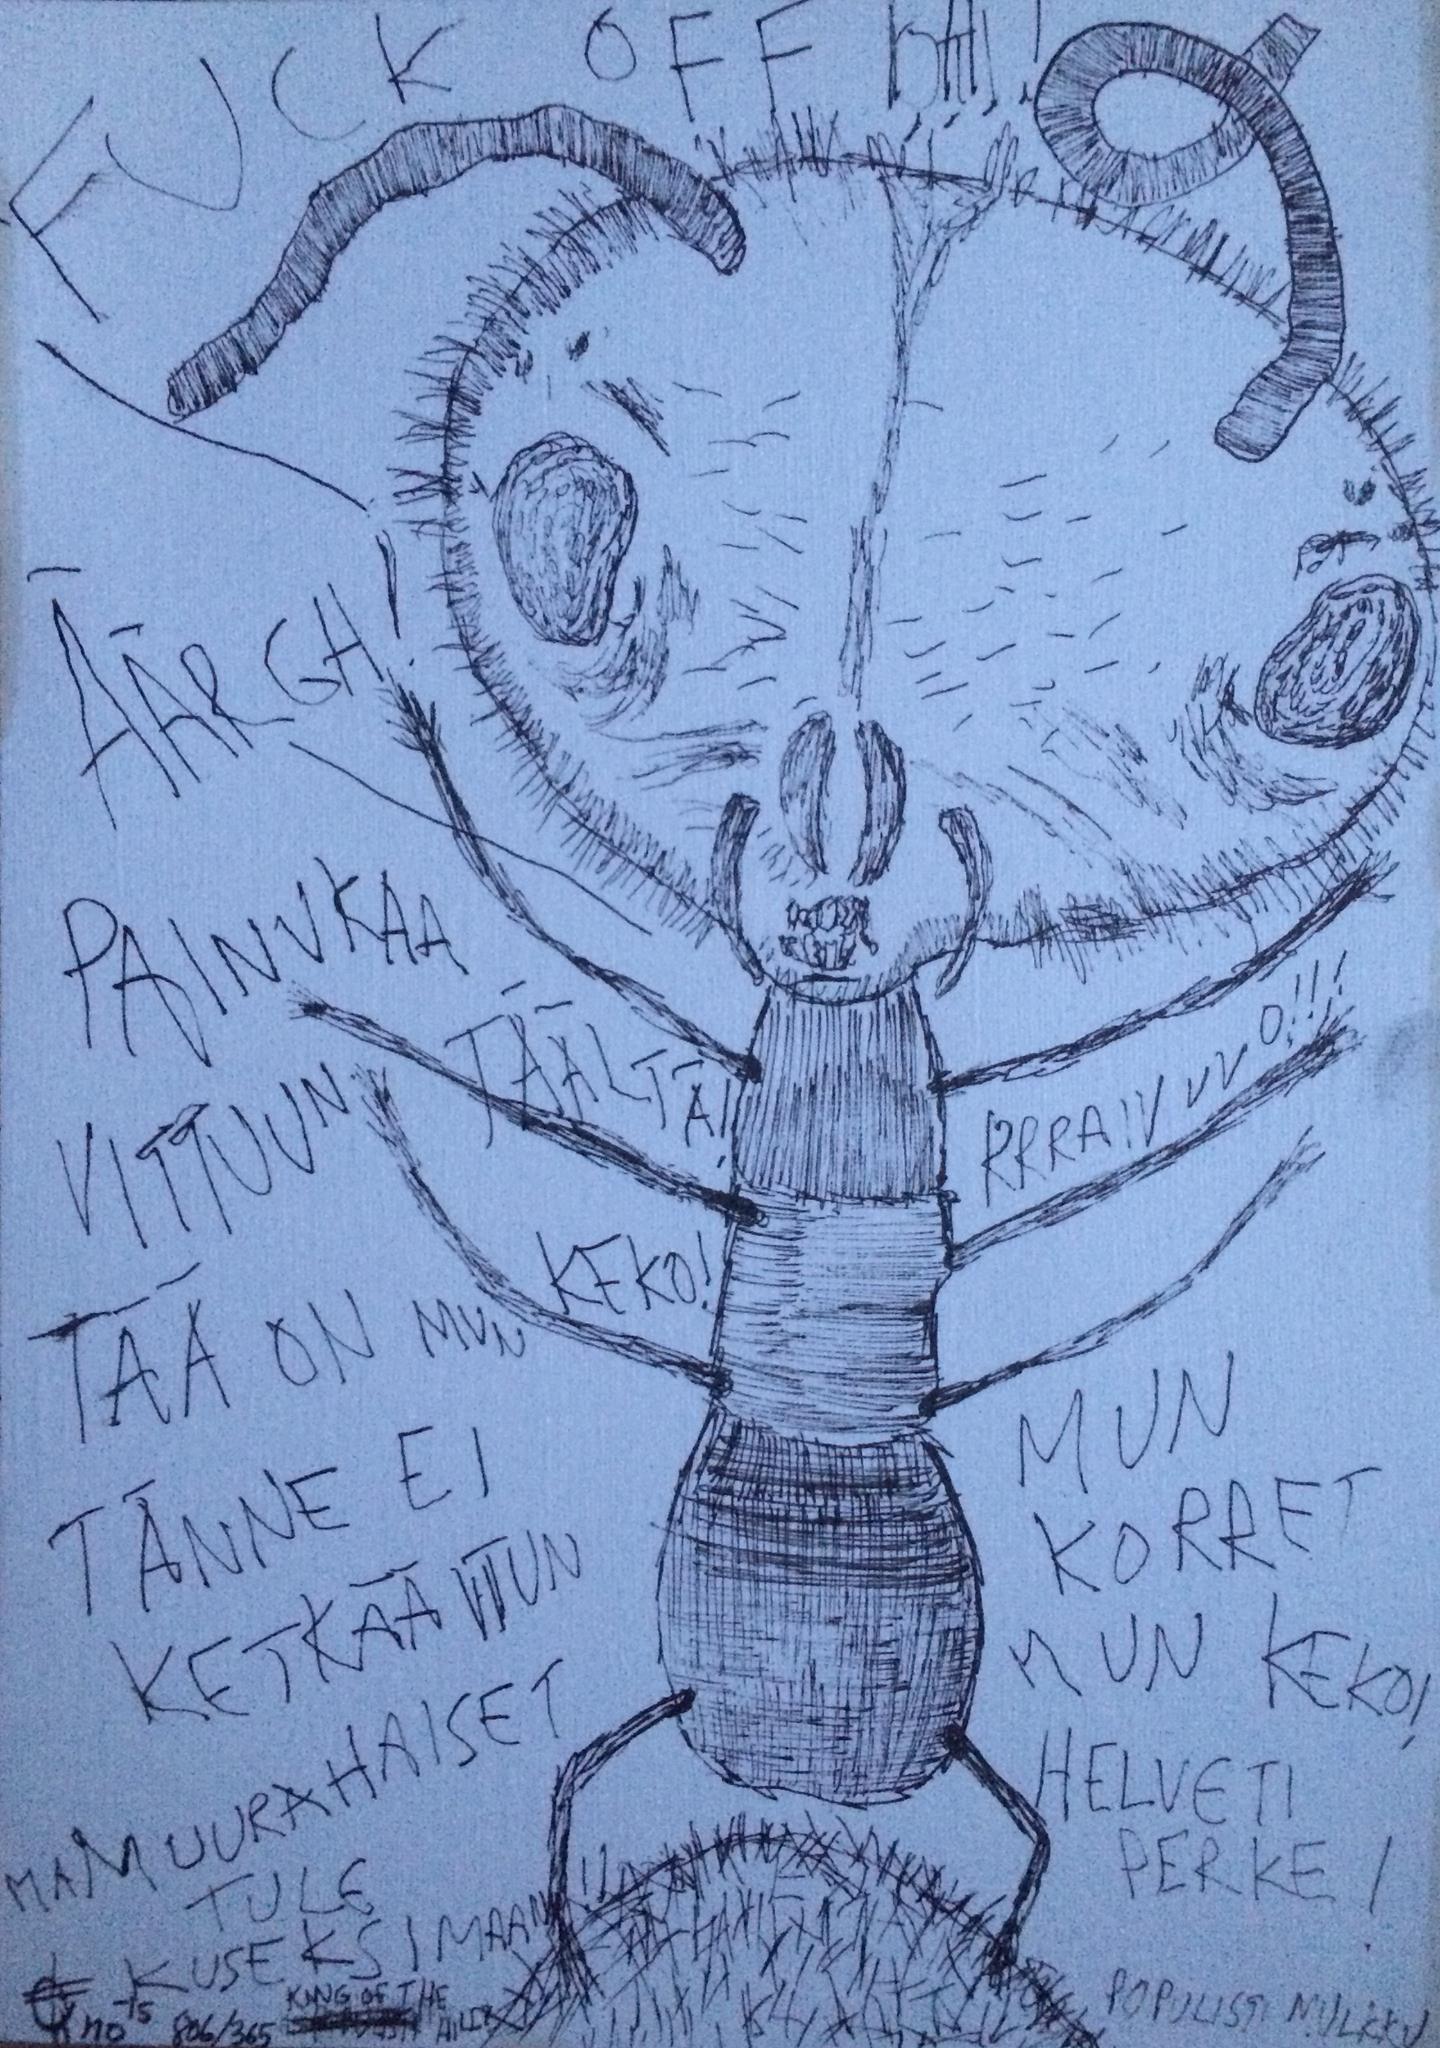 FUCK OFF BAI!
ÄÄRGH!
PAINUKAA
VITTUUN TÄÄLTÄ!
TÄÄ ON MUN KEKO!
TÄNNE EI
KETKÄÄ VITUN
MAMUURAHAISET
TULE
KUSEKSIMAAN!!
RRRAIVUUUO!!!
MUN
KORRET
MUN KEKO!
HELVETI
PERKE!
-15
806/365
KING OF THE
HILL
POPULISTI MULKKU